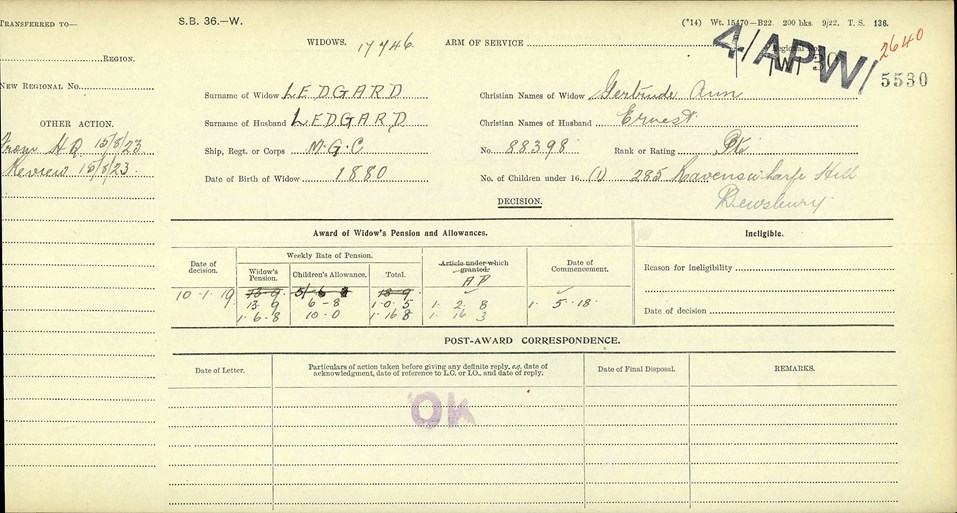 TRANSFERRED TO—
S.B. 36.—W.
(*14) Wt. 15470—B22. 200 bks. 9/22. T. S. 136.
WIDOWS. 17746.
ARM OF SERVICE
Regional No.
4/APW/
W 30
2640
5530
REGION.
NEW REGIONAL No.
OTHER ACTION.
From H.Q. 15/8/23
Review 15/8/23.
Surname of Widow LEDGARD
Christian Names of Widow Gertrude Ann
Surname of Husband LEDGARD
Christian Names of Husband Ernest
Ship, Regt. or Corps M.G.C.
No. 88398
Rank or Rating Pte
Date of Birth of Widow 1880
No. of Children under 16 (1) 285 Ravenswharfe Hill
Dewsbury.
DECISION.
Award of Widow's Pension and Allowances.
Ineligible.
Date of decision.
Weekly Rate of Pension.
Widow's Pension.
Children's Allowance.
Total.
Article under which granted.
AP
Date of Commencement.
Reason for ineligibility
Date of decision
10.1.19 13.9 18.9
13.9 6-8 1.0.5 1.2.8 1.5.18.
1.6.8 10-0 1.16.8 1.16.3
POST-AWARD CORRESPONDENCE.
Date of Letter.
Particulars of action taken before giving any definite reply, e.g. date of acknowledgment, date of reference to L.C. or I.O., and date of reply.
Date of Final Disposal.
REMARKS.
OK